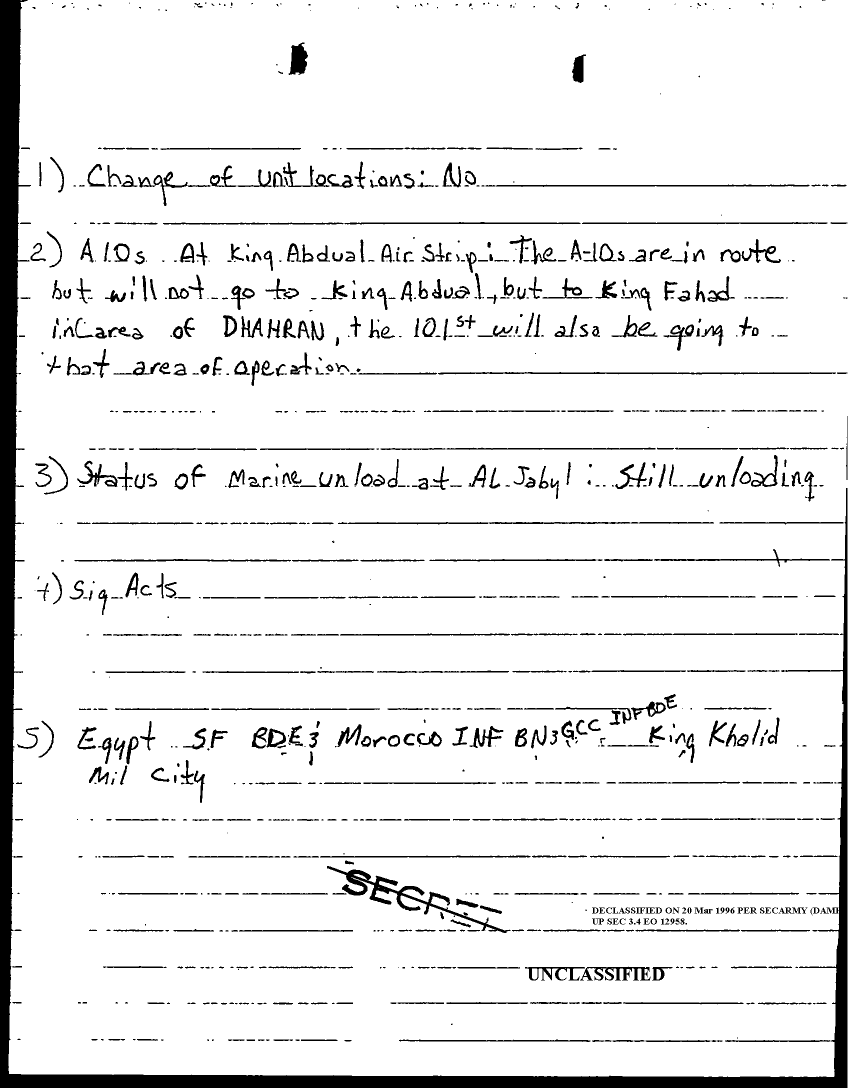 1) Change of unit locations: No
2) A10s At King Abdual Air Strip: The A-10s are in route
but will not go to King Abdual, but to King Fahad
in area of DHAHRAN, the 101st will alsa be going to
that area of operation.
3) Status of Marine unload at AL Jabyl: Still unloading
4) Sig Acts
5) Egypt SF BDE & Morocco INF BN & GCC INF BDE King Khalid
Mil City
SECRET
DECLASSIFIED ON 20 Mar 1996 PER SECARMY (DAMH
UP SEC 3.4 EO 12958.
UNCLASSIFIED